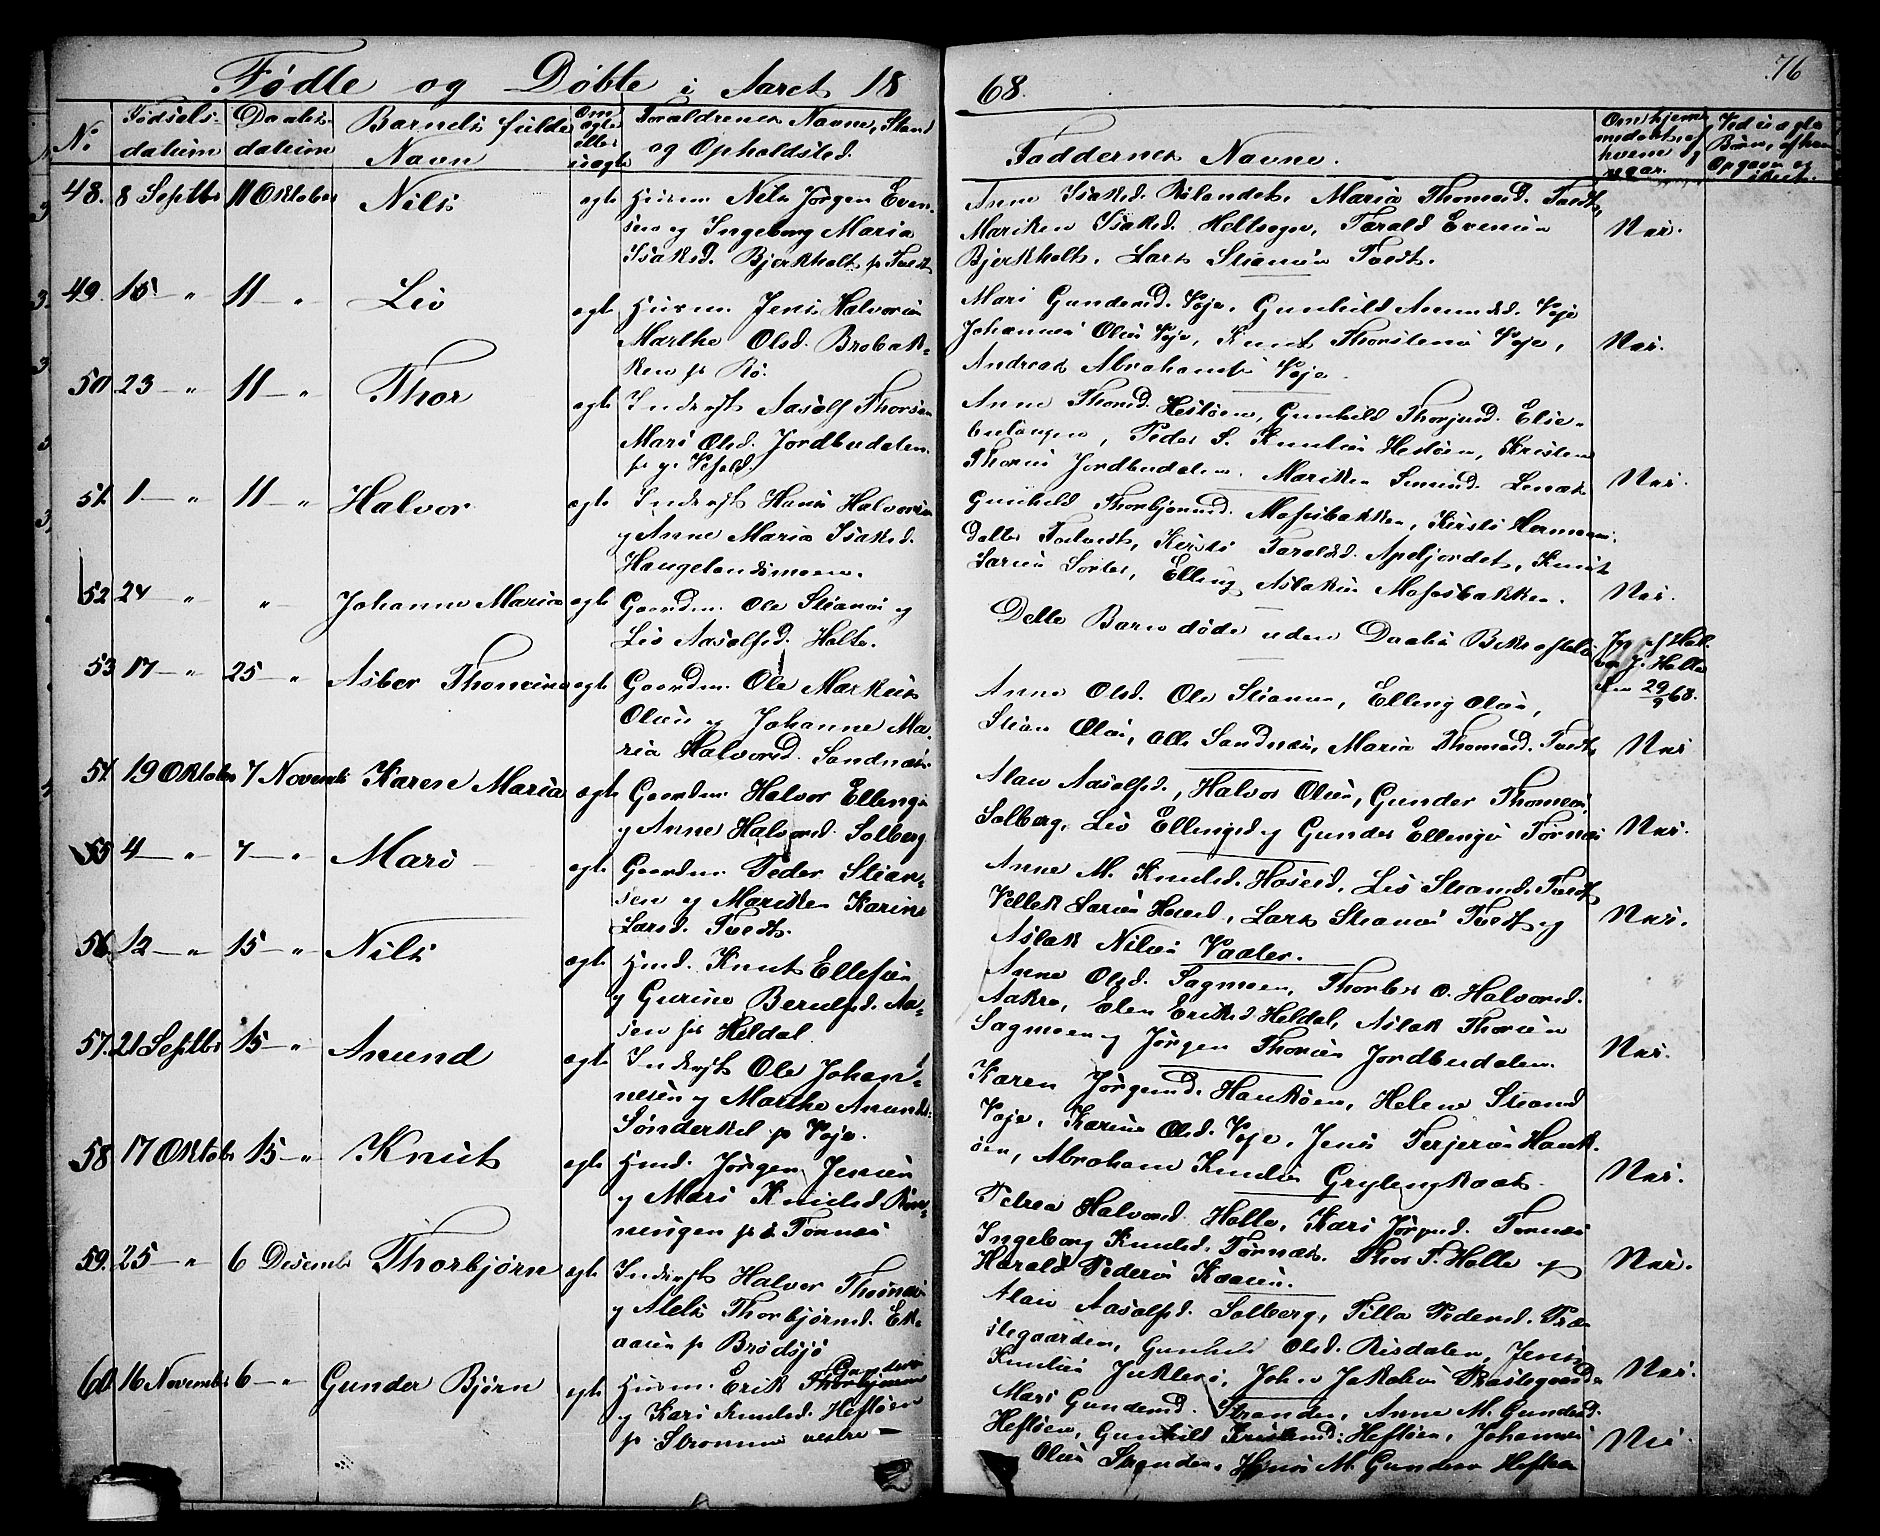 Fødte og Døbte i Aaret 1868.
76
No
Fødsels-
datum
Daabs-
datum
Barnets fulde
Navn
Om
ægte
eller
uægte
Forældrenes Navne, Stand
og Opholdsted.
Faddernes Navne.
48. 8 Septbr 11 Oktober Nils ægte Husm. Nils Jørgen Even-
sen og Ingeborg Maria
Isaksd. Bjørkholt p Tvedt
Anne Isaksd. Maria Thomasd. Tvedt,
Mariken Isaksd. Helleoger, Tarald Evensen
Bjerkholt, Lars Stiansen Tvedt.
Nei.
49. 15 — " 11 — " Liv ægte Husm. Jens Halvorsen
Marthe Olsd. Brobak-
ken p Bø.
Mari Gundersd. Voje, Gunhild Amundsd. Voje
Johannes Olsen Voje, Knut Thorstensen Voje,
Andreas Abrahamsen Voje
Nei.
50 23 — " 11 — " Thor ægte Inderst Aasolf Thorsen
Mari Olsd. Jordbudalen
Anne Thorsd. Hestøen, Gunhild Thorjusd. Else-
Peder S. Knutsen Hestøen, Kristen
Thorsen Jordbudalen.
Nei.
51. 1 — " 11 — " Halvor ægte Inderst Hans Halvorsen
og Anne Maria Isaksd.
Haugelandsmoen.
Mariken Simensd. Lenæs
Gunhild Thorbjørnsd. Mosebakken, Kirsti Hermans-
datter Tvedt, Kirsti Taraldsd. Apeljordet, Knut
Larsen Sorter, Elling Aslaksen Mosebakken.
Nei.
52 24 — " " — Johanne Maria ægte Gaardm. Ole Stiansen og
Liv Aasolfsd. Holte.
Dette Barn døde uden Daabens Bekræftelse
Jpp af Hal-
vor J. Holte
den 29/9 68.
53 17 — " 25 — " Asber Thomine ægte Gaardm. Ole Markus
Olsen og Johanne Ma-
ria Halvorsd. Sandnæs
Anne Olsd. Ole Stiansen, Elling Olsen,
Stian Olsen, alle Sandnæs, Maria Thomasd. Tvedt
Nei
54. 19 Oktober 7 Novemb Karen Maria ægte Gaardm. Halvor Ellingsen
og Anne Halvorsd. Solberg
Alau Aasolfsd., Halvor Olsen, Gunder Thomesen,
Solberg, Liv Ellingsd og Gunder Ellingsen Tørnæs
Nei.
55 4 — " 7 — " Mari ægte Gaardm. Peder Stian-
sen og Mariken Karine
Larsd. Tvedt.
Anne M. Knudsd. Høsed, Liv Stiansd. Tvedt
Vellek Larsen Høsed, Lars Stiansen Tvedt og
Aslak Nilsen Vaaler.
Nei.
56 12 — " 15 — " Nils ægte Hmd. Knut Ellefsen
og Gurine Berulfsd. Aa-
sen p Heldal
Anne Olsd. Sagmoen, Thorber O. Halvorsd.
Aakre, Elen Eriksd Heldal, Aslak Thorsen
Sagmoen og Jørgen Thorsen Jordbudalen.
Nei.
57. 21 Septbr 15 — " Anund ægte Inderst Ole Johan-
nesen og Marthe Anunds-
Sønderkel p Voje.
Karen Jørgensd. Haukøen, Helene Stiansd
Voje, Karine Olsd. Voje, Jens Terjesen Hauk-
øen, Abraham Knutsen Grylengkaas.
Nei.
58 17 Oktob 15 — " Knut ægte Hmd. Jørgen Jensen
og Mari Knudsd Røn-
ningen p Tørnæs
Petrea Halvorsd. Holte, Kari Jørgensd. Tørnæs
Ingeborg Knudsd. Tørnæs. Thor T. Holte og
Harald Pedersen Kaasen.
Nei.
59. 25 — " 6 Desemb Thorbjørn ægte Inderst Halvor Thomesen
og Alet Thorbjørnsd. Ek-
aasen p Brødsjø
Alau Aasolfsd. Solberg, Tilla Pedersd. Præ-
stegaarden, Gunhild Olsd. Risdalen, Jens
Knutsen Juklerø, John Jakobsen Præstegaarden
Nei.
60 16 Novembr 6 — " Gunder Bjørn ægte Husm. Erik Gundersen
og Kari Knudsd. Heftøen
p Strømme vestre —
Mari Gundersd. Stranden, Anne M. Gundersd.
Heftøen, Gunhild Kristensd. Heftøen, Johannes
Olsen Stranden, Hans M. Gundersen Heftøen
Nei